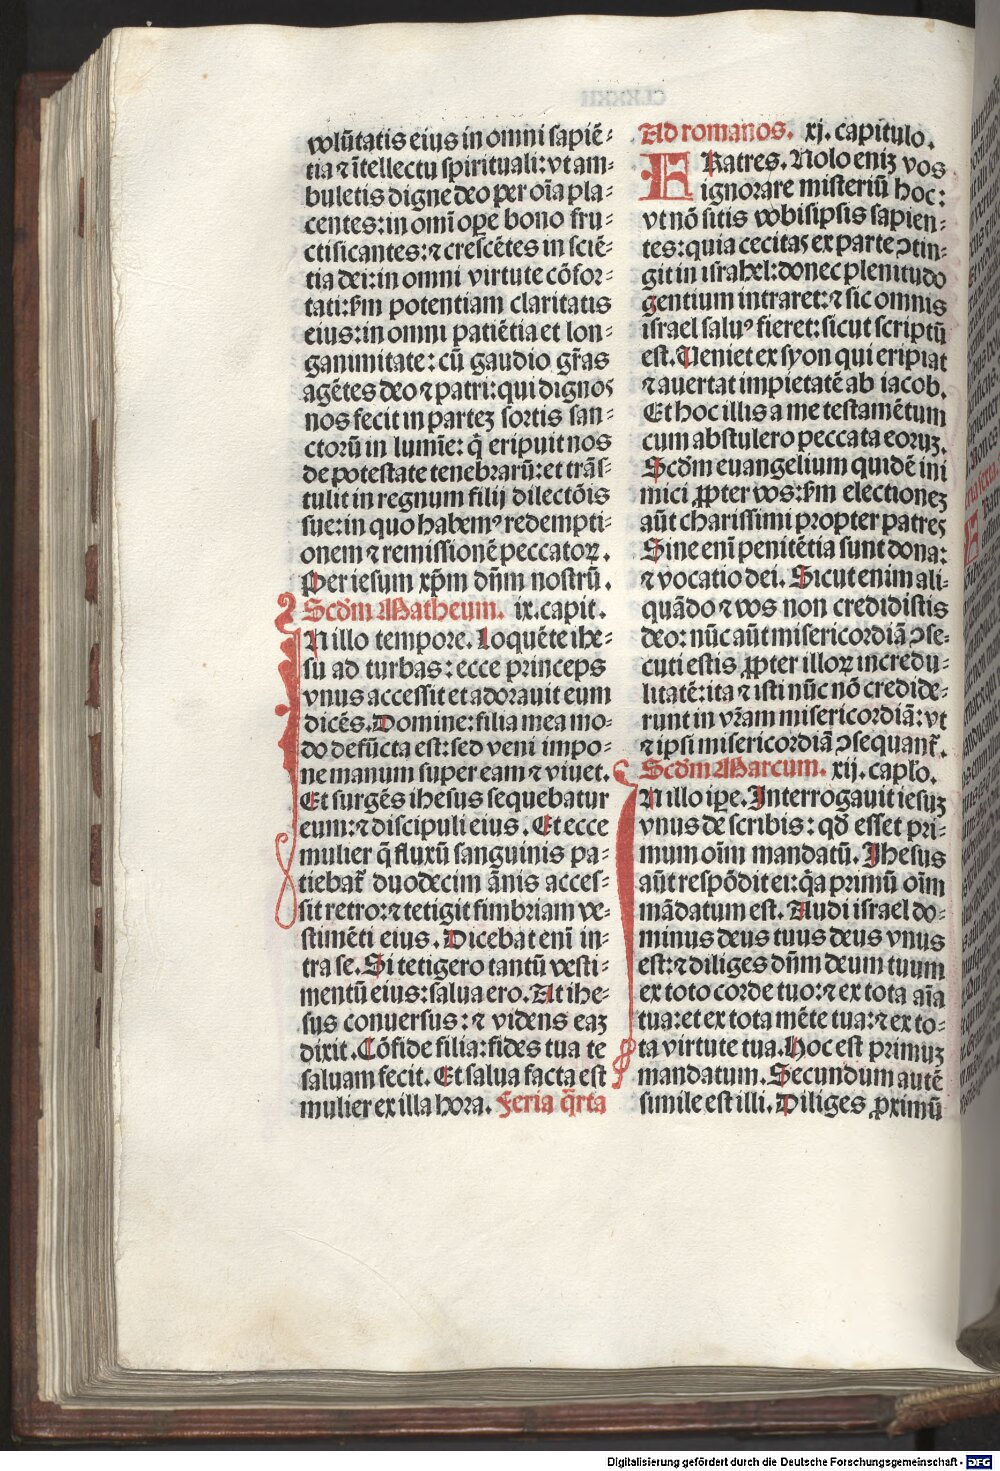 volūtatis eius in omni sapiē⸗
tia ⁊ ītellectu spirituali: vt am⸗
buletis digne deo per oīa pla⸗
centes: in omī oꝑe bono fru⸗
ctificantes: ⁊ crescētes in sciē⸗
tia dei: in omni virtute cōfor⸗
tati: ẜm potentiam claritatis
eius: in omni patiētia et lon⸗
ganimitate: cū gaudio gr̄as
agētes deo ⁊ patri: qui dignos
nos fecit in parteꝫ sortis san⸗
ctorū in lumīe: q̄ eripuit nos
de potestate tenebrarū: et trās⸗
tulit in regnum filij dilectōis
sue: in quo habemꝰ redempti⸗
onem ⁊ remissionē peccatoꝝ.
Per iesum xp̄m dn̄m nostrū.
Scd̄m Matheum. ix. capit.
In illo tempore. Loquēte ihe⸗
su ad turbas: ecce princeps
vnus accessit et adorauit eum
dicēs. Domine: filia mea mo⸗
do defūcta est: sed veni impo⸗
ne manum super eam ⁊ viuet.
Et surgēs ihesus sequebatur
eum: ⁊ discipuli eius. Et ecce
mulier q̄ fluxū sanguinis pa⸗
tiebat᷑ duodecim ānis acces⸗
sit retro: ⁊ tetigit fimbriam ve⸗
stimēti eius. Dicebat enī in⸗
tra se. Si tetigero tantū vesti⸗
mentū eius: salua ero. At ihe⸗
sus conuersus: ⁊ videns eaꝫ
dixit. Cōfide filia: fides tua te
saluam fecit. Et salua facta est
mulier ex illa hora. Feria q̄rta
Ad romanos. xj. capitulo.
FRatres. Nolo eniꝫ vos
ignorare misteriū hoc:
vt nō sitis vobisipsis sapien⸗
tes: quia cecitas ex parte ↄtin⸗
git in israhel: donec plenitudo
gentium intraret: ⁊ sic omnis
israel saluꝰ fieret: sicut scriptū
est. Veniet ex syon qui eripiat
⁊ auertat impietatē ab iacob.
Et hoc illis a me testamētum
cum abstulero peccata eoruꝫ.
Scd̄m euangelium quidē ini
mici ꝓpter vos: ẜm electioneꝫ
aūt charissimi propter patres
Sine enī penitētia sunt dona:
⁊ vocatio dei. Sicut enim ali⸗
quādo ⁊ vos non credidistis
deo: nūc aūt misericordiā ↄse⸗
cuti estis ꝓpter illoꝝ incredu⸗
litatē: ita ⁊ isti nūc nō credide⸗
runt in vr̄am misericordiā: vt
⁊ ipsi misericordiā ↄsequant᷑.
Scd̄m Marcum. xij. capl̄o.
In illo tꝑe. Interrogauit iesuꝫ
vnus de scribis: qd̄ esset pri⸗
mum oīm mandatū. Ihesus
aūt respōdit ei: q̄a primū oīm
mādatum est. Audi israel do⸗
minus deus tuus deus vnus
est: ⁊ diliges dn̄m deum tuum
ex toto corde tuo: ⁊ ex tota aīa
tua: et ex tota mēte tua: ⁊ ex to⸗
ta virtute tua. Hoc est primuꝫ
mandatum. Secundum autē
simile est illi. Diliges ꝓximū
Digitalisierung gefördert durch die Deutsche Forschungsgemeinschaft - DFG